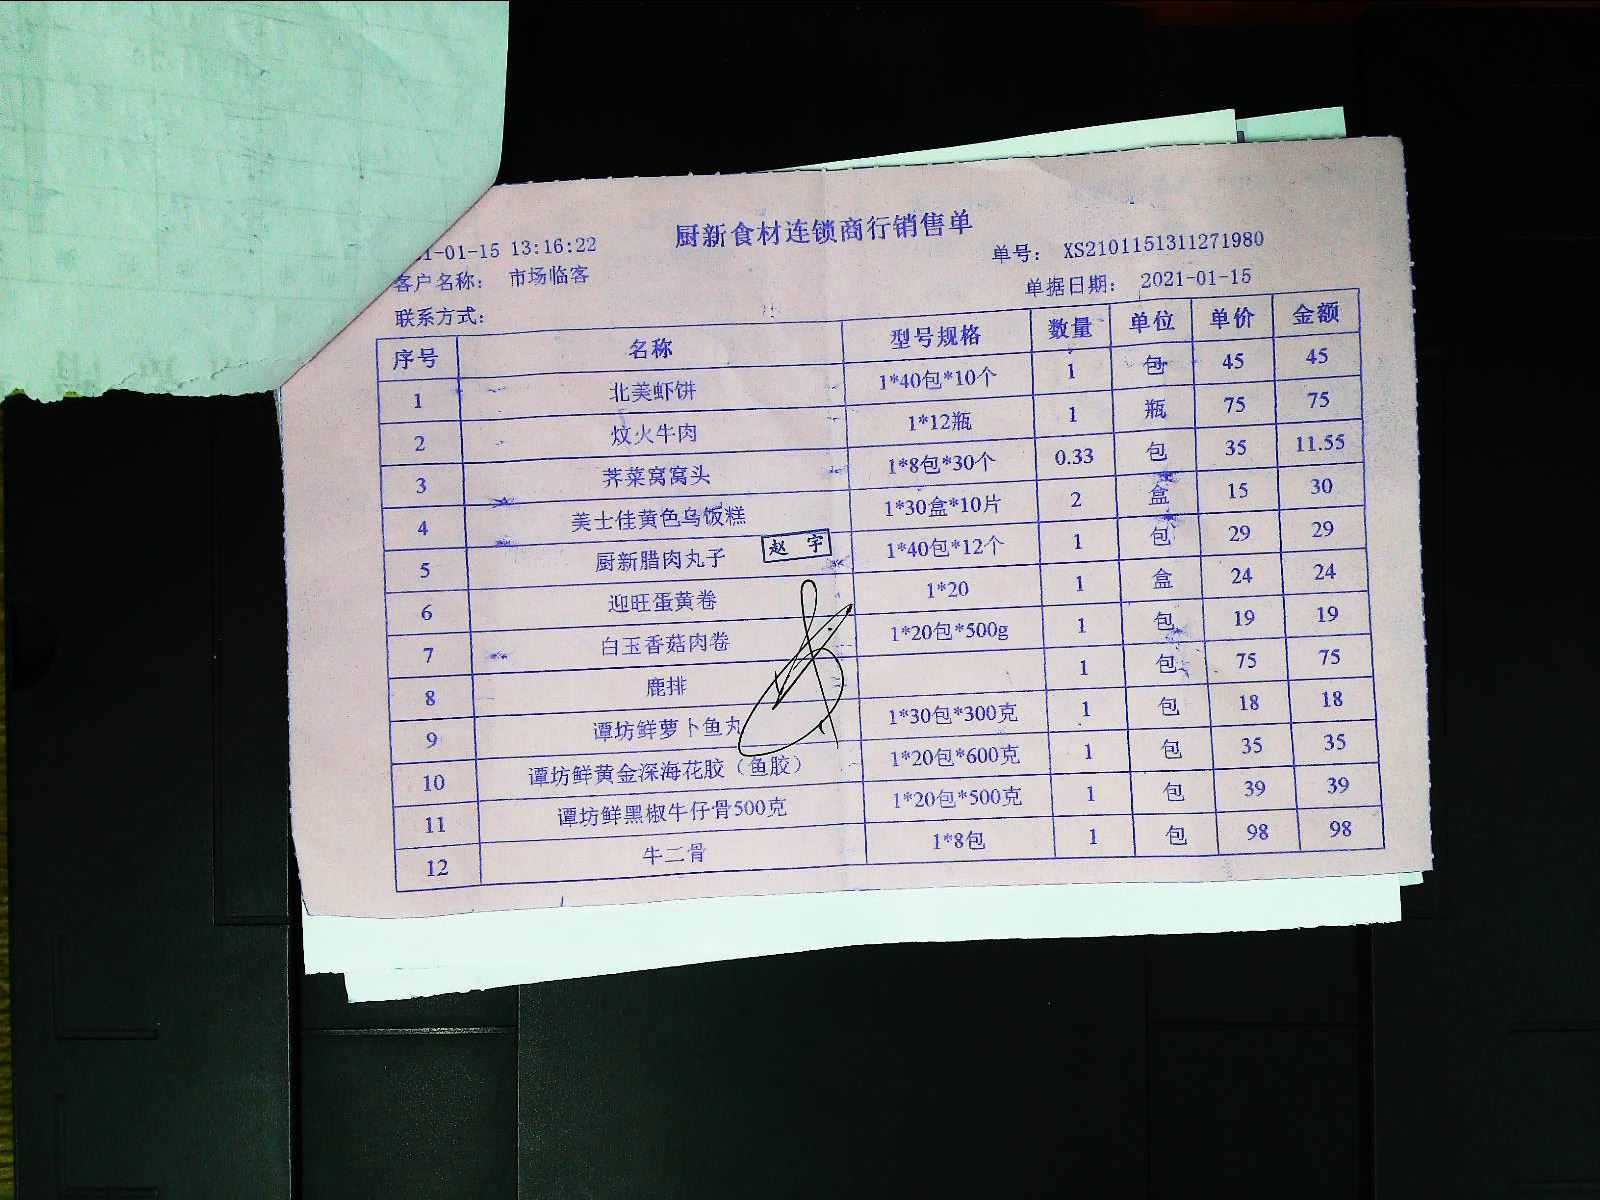 厨新食材连锁商行销售单
1-01-15 13:16:22
单号： XS2101151311271980
客户名称： 市场临客
单据日期： 2021-01-15
联系方式：
序号 名称 型号规格 数量 单位 单价 金额
1 北美虾饼 1*40包*10个 1 包 45 45
2 炆火牛肉 1*12瓶 1 瓶 75 75
3 荠菜窝窝头 1*8包*30个 0.33 包 35 11.55
4 美士佳黄色乌饭糕 1*30盒*10片 2 盒 15 30
5 厨新腊肉丸子 1*40包*12个 1 包 29 29
赵 宇
6 迎旺蛋黄卷 1*20 1 盒 24 24
7 白玉香菇肉卷 1*20包*500g 1 包 19 19
8 鹿排 1 包 75 75
9 谭坊鲜萝卜鱼丸 1*30包*300克 1 包 18 18
10 谭坊鲜黄金深海花胶（鱼胶） 1*20包*600克 1 包 35 35
11 谭坊鲜黑椒牛仔骨500克 1*20包*500克 1 包 39 39
12 牛二骨 1*8包 1 包 98 98